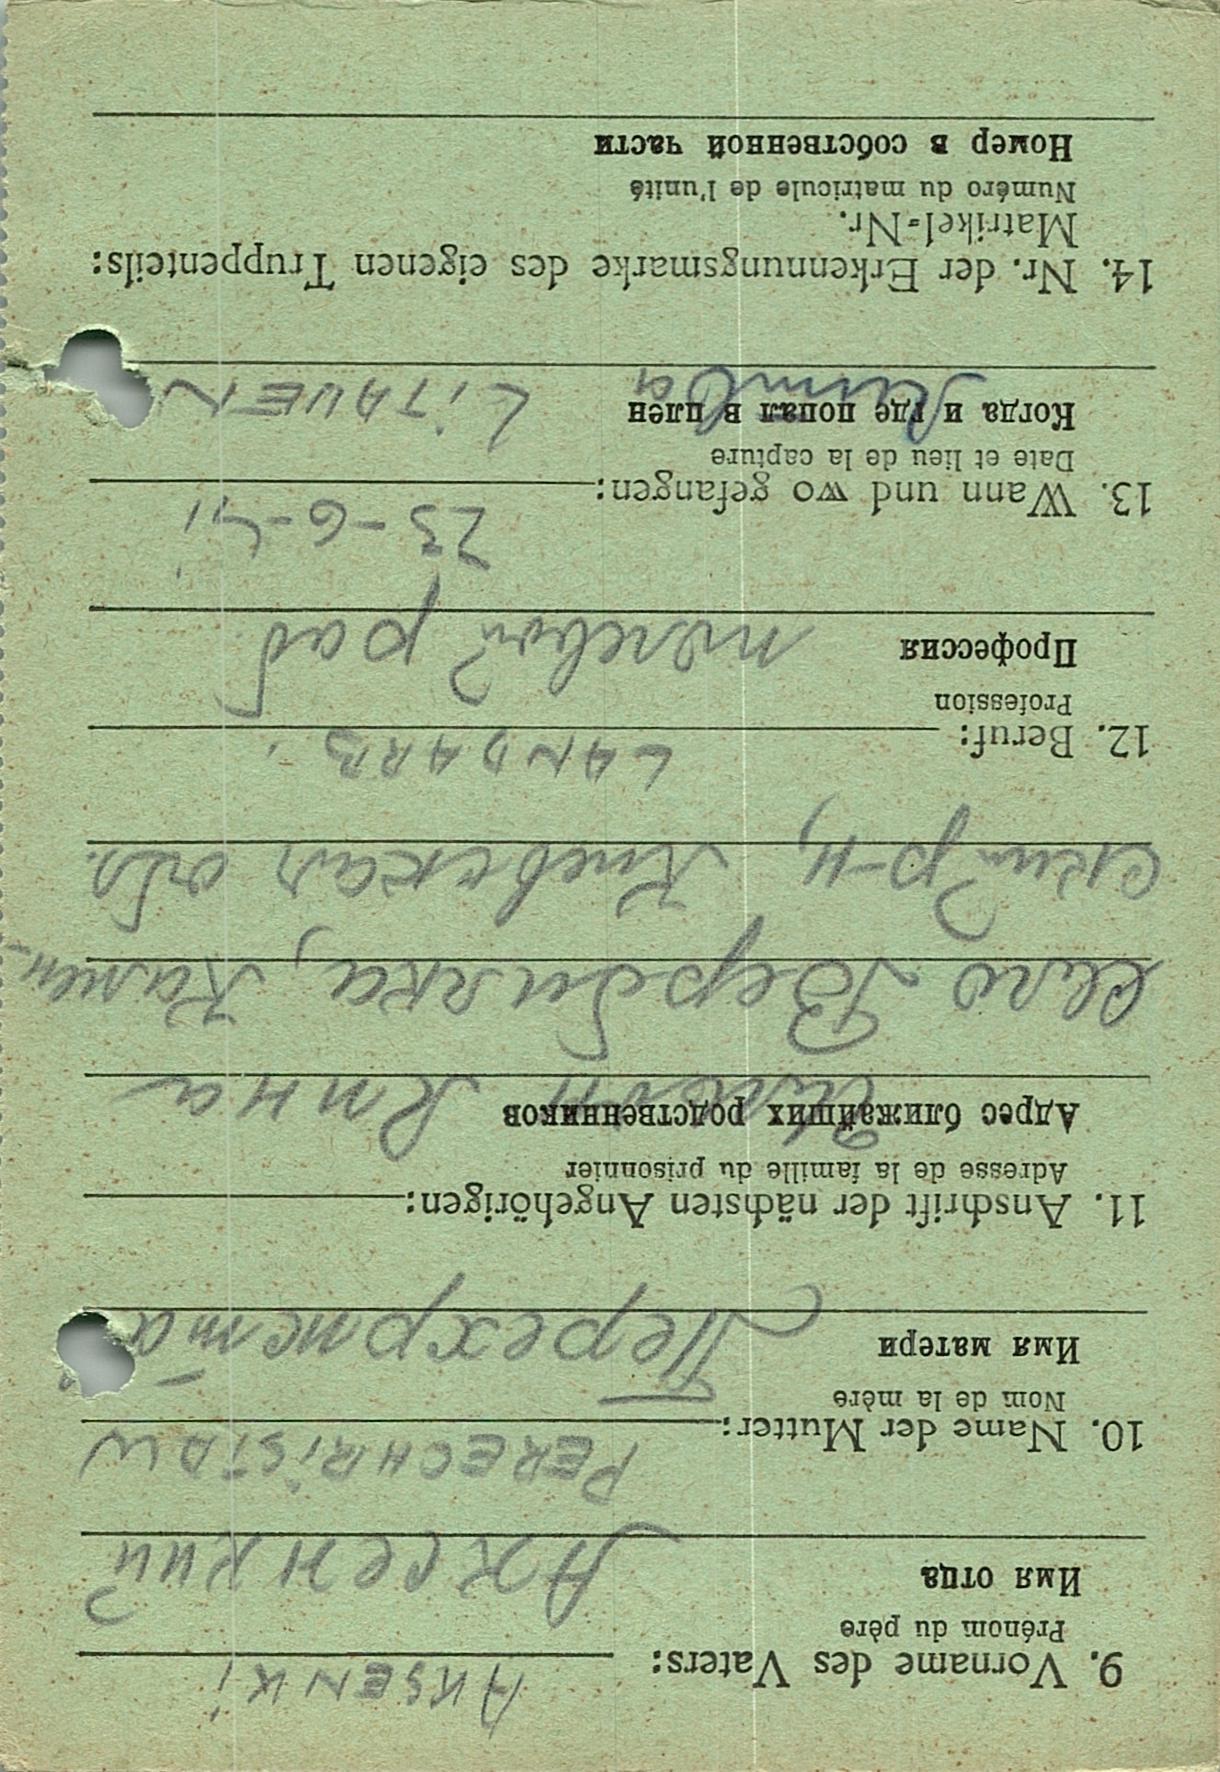 AKSENKi
9. Vorname des Vaters:
Prénom du père
Имя отца
Аксенкий
PERECHRiSTAW
10. Name der Mutter:
Nom de la mère
Имя матери
11. Anschrift der nächsten Angehörigen:
Adresse de la famille du prisonnier
Адрес ближайших родственников
село Вербилка, Камен-
ский р-н, Киевская обл.
LANDARB.
12. Beruf:
Profession
Профессия
полевой раб.
23-6-41
13. Wann und wo gefangen:
Date et lieu de la capture
Когда и где попал в плен
Литва LiTAUEN
14. Nr. der Erkennungsmarke des eigenen Truppenteils:
Matrikel-Nr.
Numéro du matricule de l'unité
Номер в собственной части